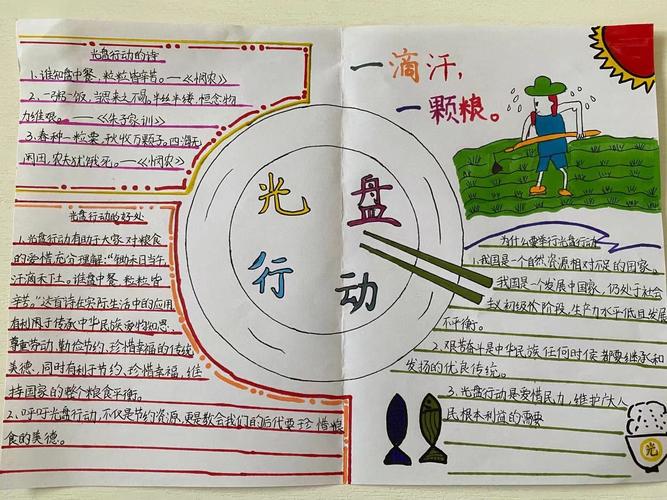 光盘行动的诗
1、谁知盘中餐，粒粒皆辛苦。——《悯农》
2、一粥一饭，当思来之不易，半丝半缕，恒念物
力维艰。——《朱子家训》
3、春种一粒粟，秋收万颗子。四海无
闲田，农夫犹饿死。——《悯农》
光盘行动的好处
1、光盘行动有助于大家对粮食
的爱惜充分理解："锄禾日当午，
汗滴禾下土。谁盘中餐，粒粒皆
辛苦。"这首诗在实际生活中的应用，
有利用于传承中华民族
尊重劳动、勤俭节约、珍惜幸福的传统
美德，同时有利于节约，珍惜幸福，维
持国家的整个粮食平衡。
2、呼吁光盘行动，不仅是节约资源，更是教会我们的后代要珍惜粮
食的美德。
光盘
行动
一滴汗，
一颗粮。
为什么要举行光盘行动
1、我国是一个自然资源相对不足的国家。
我国是一个发展中国家，仍处于社会
主义初级阶段，生产力水平低且发展
不平衡。
2、艰苦奋斗是中华民族任何时候都要继承和
发扬的优良传统。
3、光盘行动是爱惜民力，维护广大人
民根本利益的需要
光